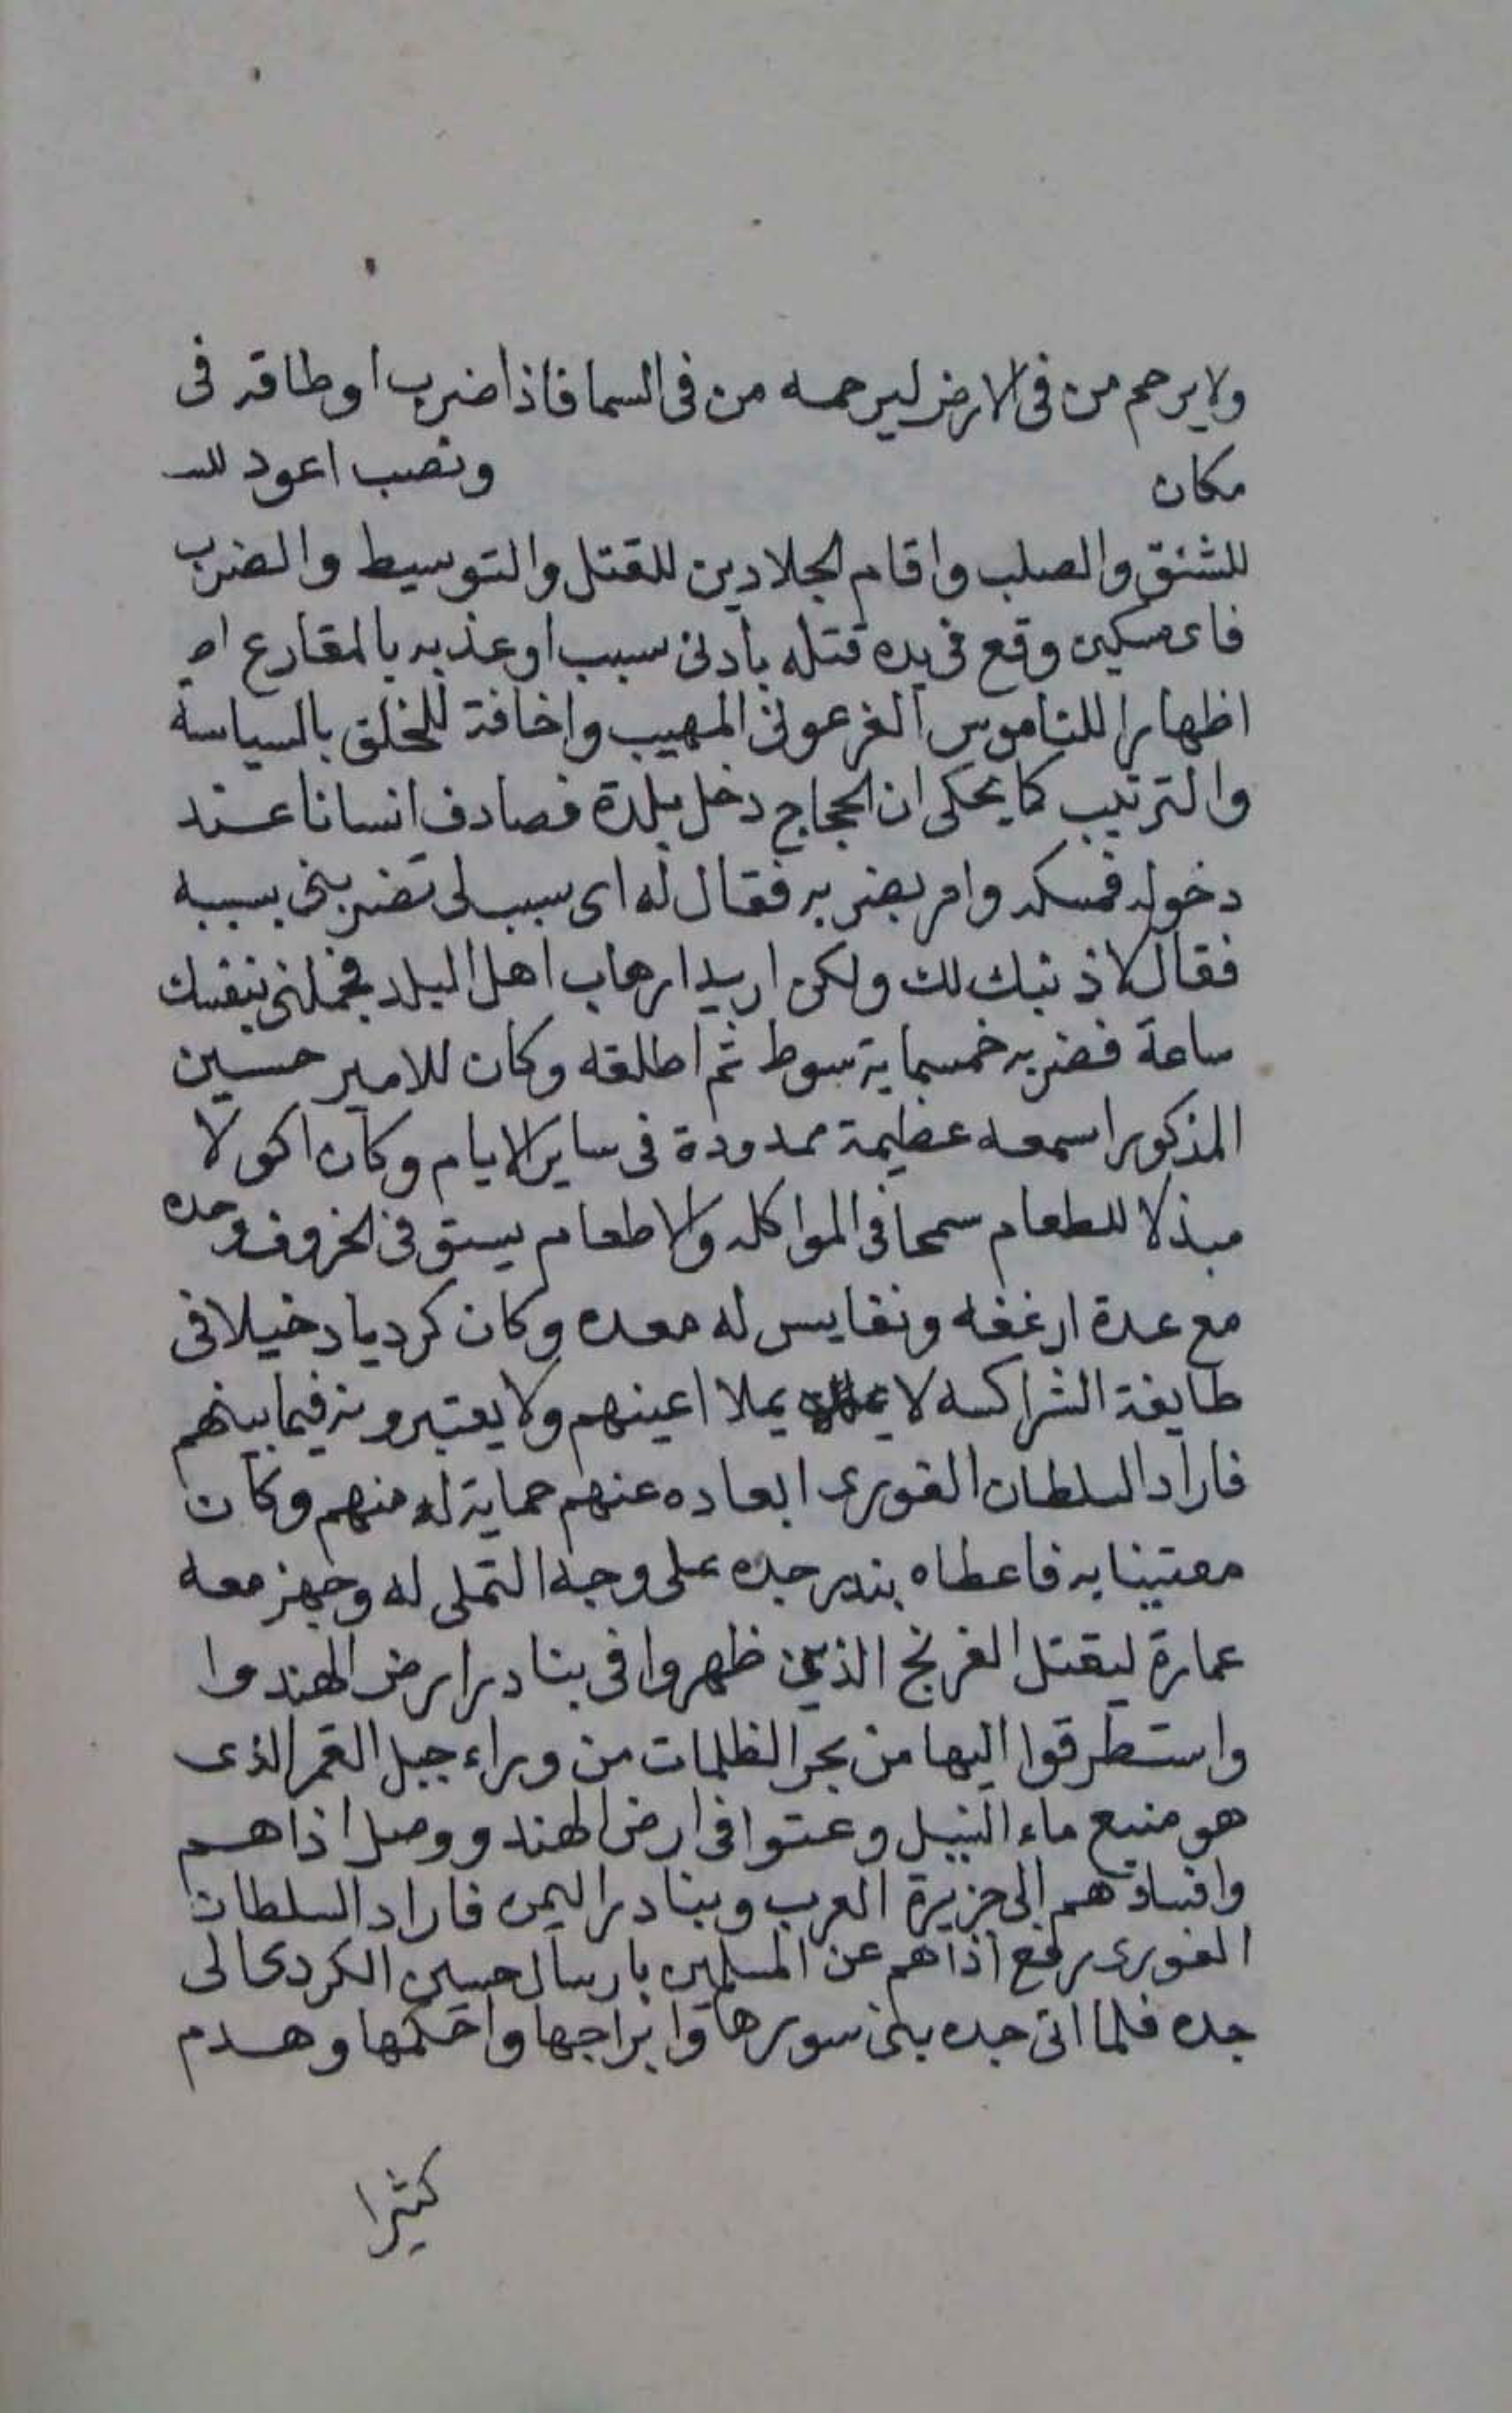 ولا يرحم من فى الارض ليرحمه من فى السما فاذا ضرب اوطاقه فى
مكان ونصب اعود للـ
للشنق والصلب واقام الجلادين للقتل والتوسيط والضرب
فاى مسكين وقع فى يده قتله بادنى سبب او عذبه بالمقارع
اظهارا للناموس الفرعونى المهيب واخافة للخلق بالسياسة
والترتيب كما يحكى ان الحجاج دخل بلدة فصادف انسانا عند
دخوله فمسكه وامر بضربه فقال له اى سبب لى تضربنى بسببه
فقال لا ذنبك لك ولكن اريد ارهاب اهل البلد فجملنى بنفسك
ساعة فضربه خمسماية سوط ثم اطلقه وكان للامير حسين
المذكور اسمعه عظيمة ممدودة فى ساير الايام وكان اكولا
مبذلا للطعام سمحا فى المواكله والاطعام يستوفى الخروف وحده
مع عدة ارغفه ونفايس له معده وكان كرديا دخيلا فى
طايفة الشراكسه لا يملا اعينهم ولا يعتبرونه فيما بينهم
فاراد السلطان الغورى ابعاده عنهم حماية له منهم وكان
معتينا به فاعطاه بندر جده على وجه التملى له وجهز معه
عمارة ليقتل الفرنج الذين ظهروا فى بنادر ارض الهند وا
واستطرقوا اليها من بحر الظلمات من وراء جبل القمر الذى
هو منبع ماء النيل وعتوا فى ارض الهند و وصل اذاهم
وافسادهم الى جزيرة العرب وبنادر اليمن فاراد السلطان
الغورى رفع اذاهم عن المسلمين بارسال حسين الكردى الى
جده فلما اتى جده بنى سورها وابراجها واحكمها وهدم
كثيرا